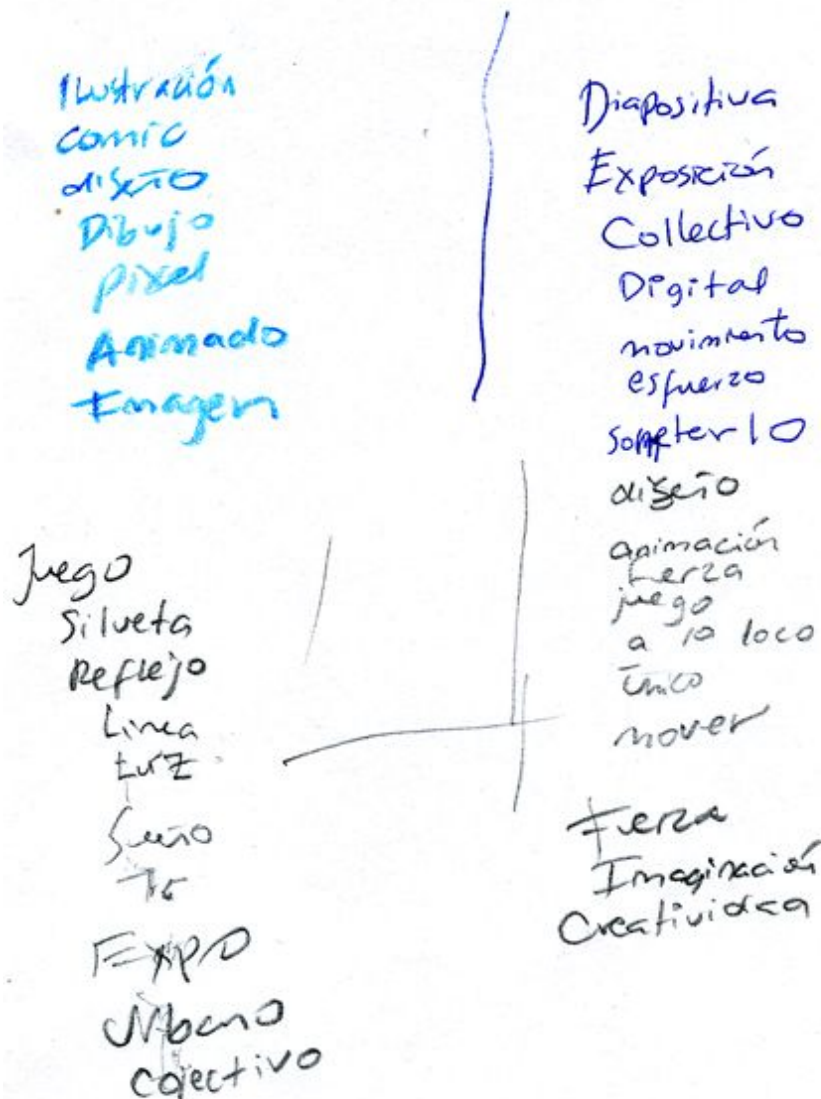 Ilustración
comic
diseño
Dibujo
pixel
Animado
Imagen
Juego
Silueta
Reflejo
Linea
Luz
Sueño
Expo
Urbano
Colectivo
Diapositiva
Exposición
Collectivo
Digital
movimiento
esfuerzo
diseño
animación
Fuerza
juego
a lo loco
único
mover
Fuerza
Imaginación
Creatividad